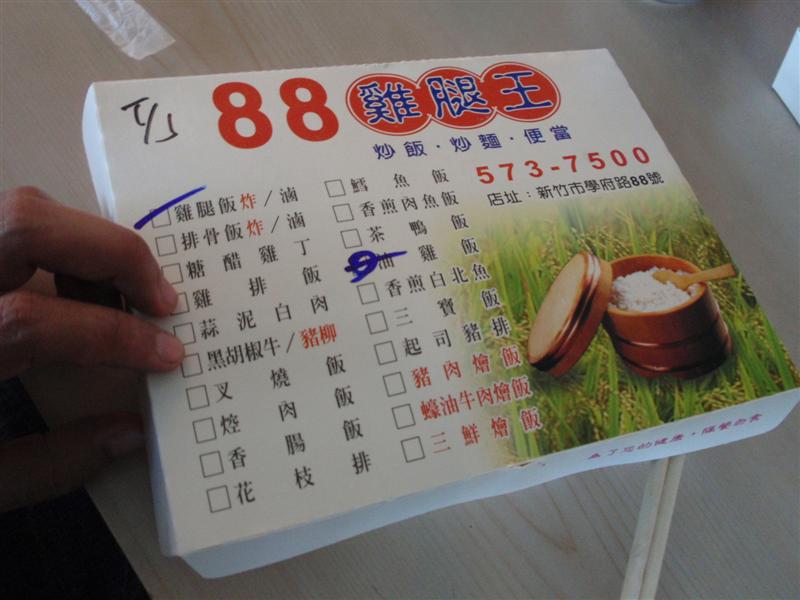 88 雞腿王
炒飯・炒麵・便當
573-7500
店址：新竹市學府路88號
□雞腿飯炸/滷
□排骨飯炸/滷
□糖醋雞丁
□雞排飯
□蒜泥白肉
□黑胡椒牛/豬柳
□叉燒飯
□焢肉飯
□香腸飯
□花枝排
□鱈魚飯
□香煎肉魚飯
□茶鴨飯
□油雞飯
□香煎白北魚
□三寶飯
□起司豬排
□豬肉燴飯
□蠔油牛肉燴飯
□三鮮燴飯
為了您的健康，隔餐勿食